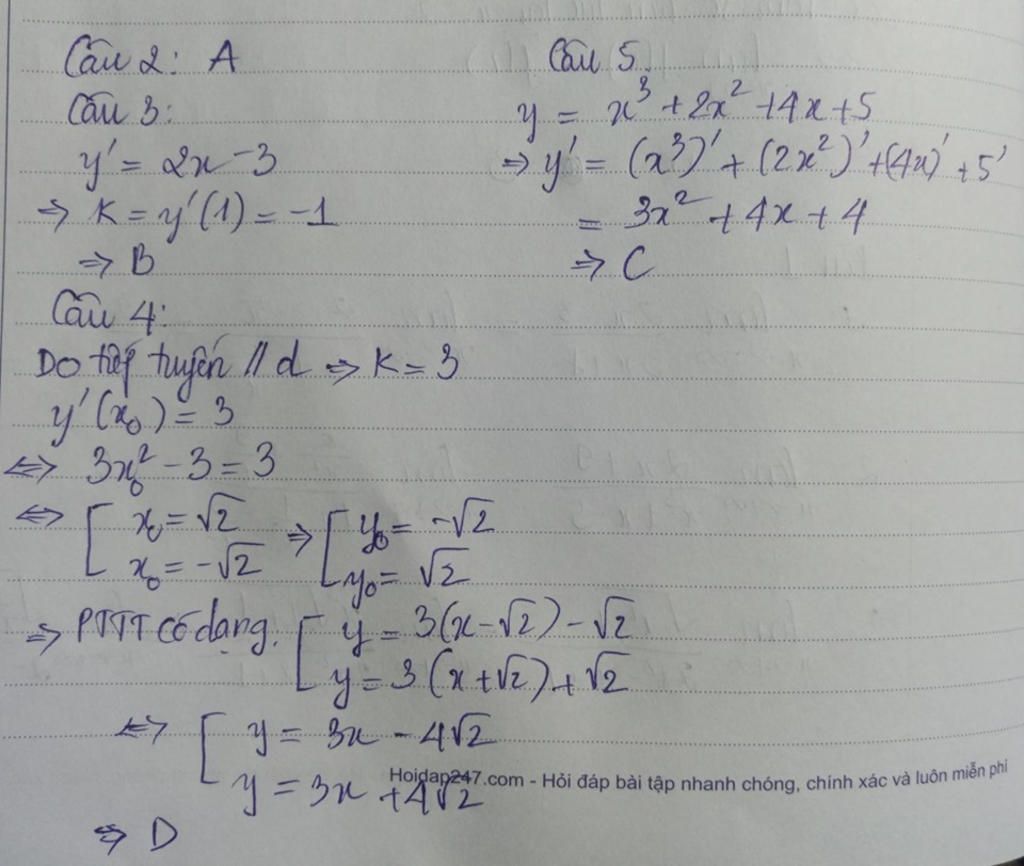 Câu 2: A
Câu 3:
y' = 2x - 3
=> K = y'(1) = -1
=> B
Câu 4:
Do tiếp tuyến // d => K = 3
y'(x₀) = 3
<=> 3x₀² - 3 = 3
<=> [ x₀ = √2 => [ y₀ = -√2
x₀ = -√2 y₀ = √2
=> PTTT có dạng. [ y = 3(x - √2) - √2
y = 3(x + √2) + √2
<=> [ y = 3x - 4√2
y = 3x + 4√2
=> D
Câu 5.
y = x³ + 2x² + 4x + 5
=> y' = (x³)' + (2x²)' + (4x)' + 5'
= 3x² + 4x + 4
=> C
Hoidap247.com - Hỏi đáp bài tập nhanh chóng, chính xác và luôn miễn phí